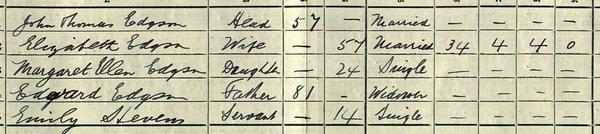 John Thomas Edgson Head 57 - Married
Elizabeth Edgson Wife — 57 Married 34 4 4 0
Margaret Ellen Edgson Daughter — 24 Single — — — —
Edward Edgson Father 81 - Widower — — — —
Emily Stevens Servant — 14 Single — — — —